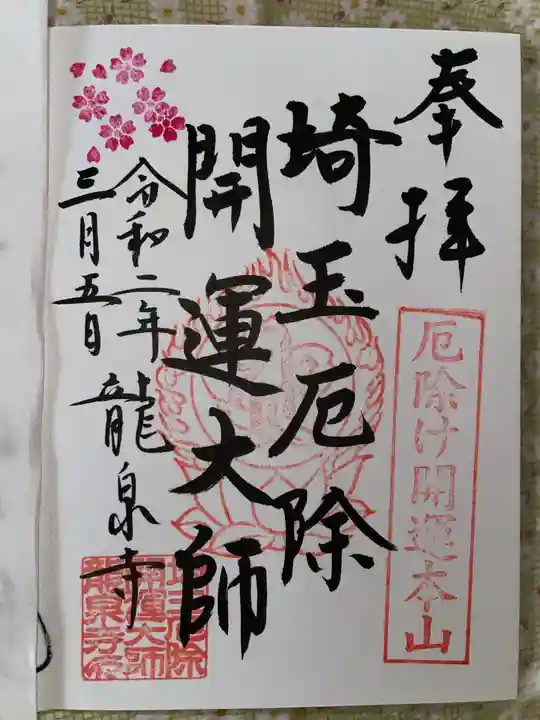 奉拝
厄除け開運本山
埼玉厄除
開運大師
令和二年
三月五日
龍泉寺
埼玉厄除
開運大師
龍泉寺